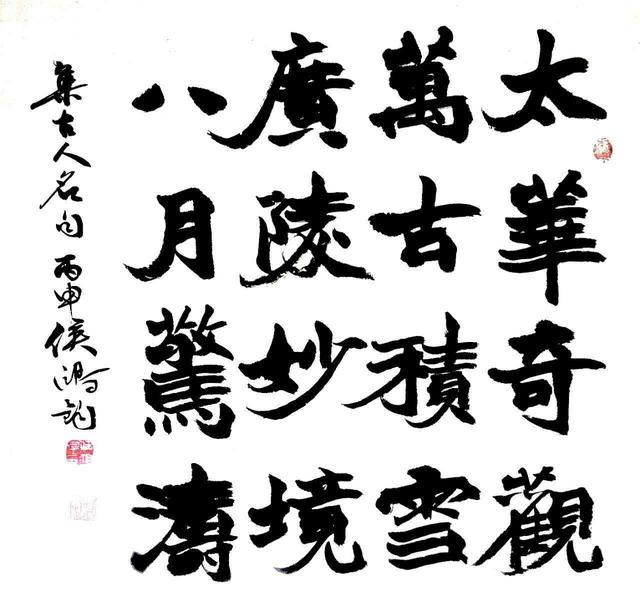 太華奇觀
萬古積雪
廣陵妙境
八月驚濤
集古人名句 丙申 侯鴻鈞